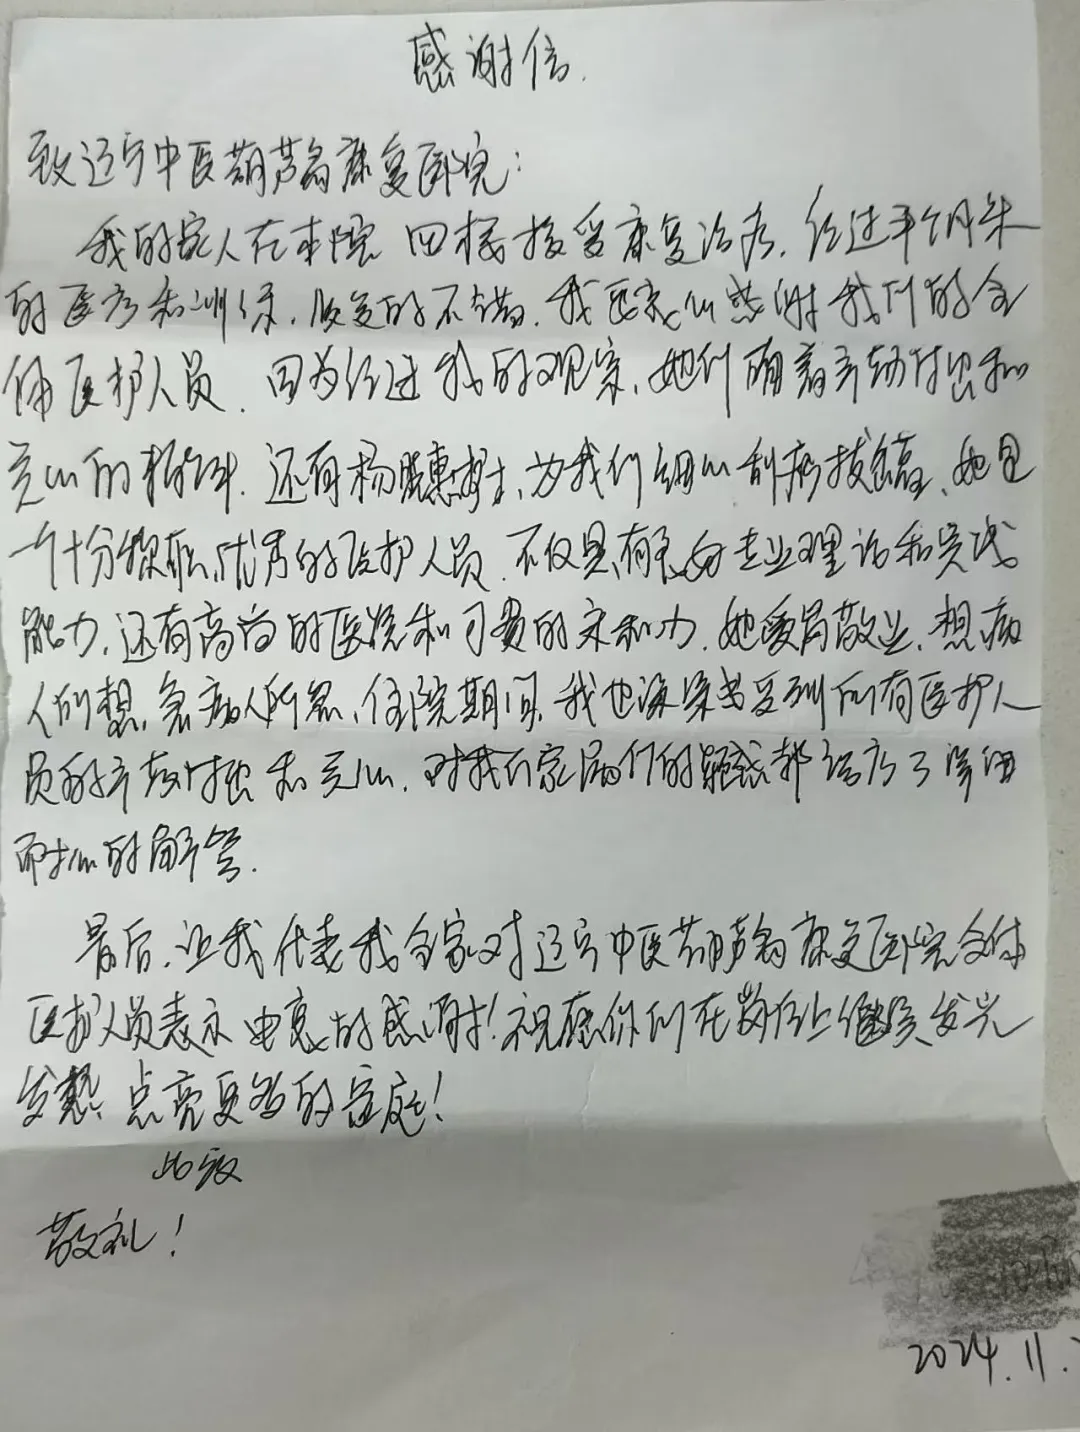 感谢信.
致辽宁中医葫芦岛康复医院:
我的家人在本院四楼接受康复治疗.经过半个月来
的医疗和训练,恢复的不错.我衷心感谢我们的全
体医护人员.因为经过我的观察,她们确着辛劳付出和
关心的精神.还有杨 惠护士,为我们细心刮痧拔罐、她是
一个十分 优秀的医护人员.不仅具有良好专业理论和实践
能力,还有高尚的医德和可贵的亲和力.她爱岗敬业,想病
人所想,急病人所急,住院期间,我也深深感受到所有医护人
员的辛劳付出和关心,对我们家属们的疑惑都给予了详细
而耐心的解答.
最后,让我代表我全家对辽宁中医葫芦岛康复医院全体
医护人员表示由衷的感谢!祝愿你们在岗位上继续发光
发热,点亮更多的家庭!
此致
敬礼!
2024.11.